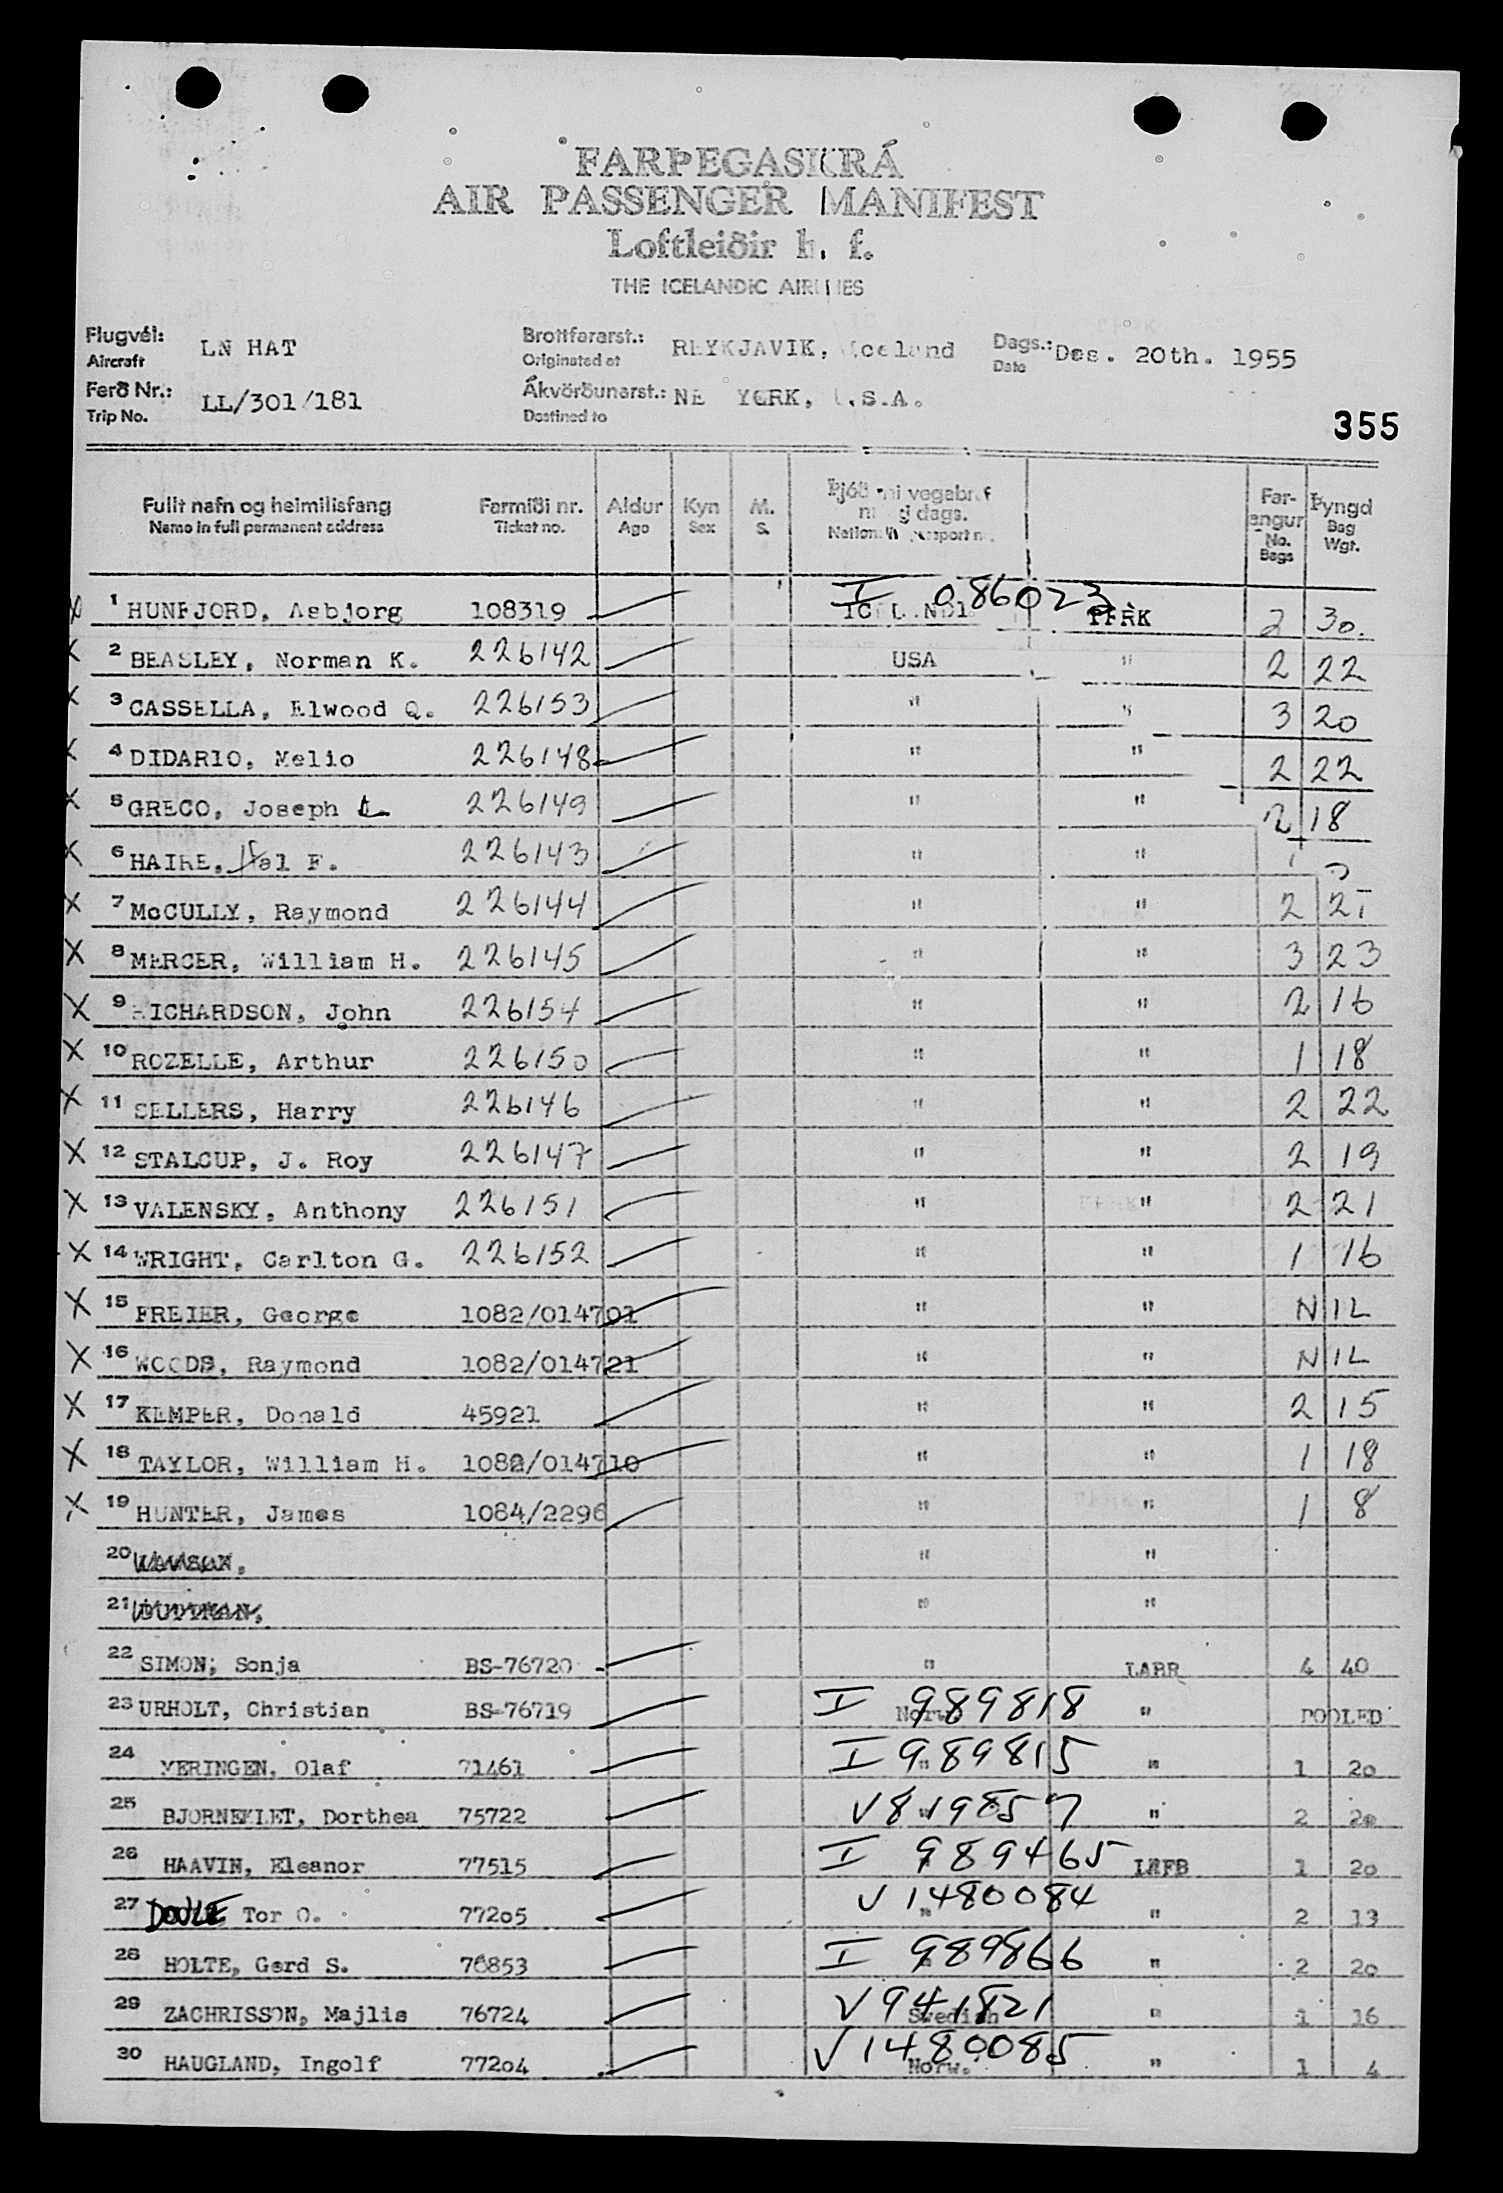 FARÞEGASKRÁ
AIR PASSENGER MANIFEST
Loftleiðir h. f.
THE ICELANDIC AIRLINES
Flugvél: LN HAT Brottfararst.: REYKJAVIK, Iceland Dags.: Des. 20th. 1955
Aircraft Originated at Date
Ferð Nr.: LL/301/181 Ákvörðunarst.: NE YORK, U.S.A.
Trip No. Destined to
355
Fullt nafn og heimilisfang Farmiði nr. Aldur Kyn M. Þjóð vegabref Far- Þyngd
Name in full permanent address Ticket no. Age Sex S. dags. angur Bag
No. Wgt.
Bags
X 1 HUNFJORD, Asbjorg 108319 I 086023 PFRK 2 30.
X 2 BEASLEY, Norman K. 226142 USA " 2 22
X 3 CASSELLA, Elwood Q. 226153 " " 3 20
X 4 DIDARIO, Melio 226148 " " 2 22
X 5 GRECO, Joseph 226149 " " 2 18
X 6 HAIRE, F. 226143 " "
X 7 McCULLY, Raymond 226144 " " 2
X 8 MERCER, William H. 226145 " " 3 23
X 9 RICHARDSON, John 226154 " " 2 16
X 10 ROZELLE, Arthur 226150 " " 1 18
X 11 SELLERS, Harry 226146 " " 2 22
X 12 STALCUP, J. Roy 226147 " " 2 19
X 13 VALENSKY, Anthony 226151 " " 2 21
X 14 WRIGHT, Carlton G. 226152 " " 1 16
X 15 FREIER, George 1082/014701 " " NIL
X 16 WOODS, Raymond 1082/014721 " " NIL
X 17 KEMPER, Donald 45921 " " 2 15
X 18 TAYLOR, William H. 1082/014710 " " 1 18
X 19 HUNTER, James 1084/2296 " " 1 8
20 " "
21 " "
22 SIMON, Sonja BS-76720 " LABR 4 40
23 URHOLT, Christian BS-76719 Norw. I 989818 " POOLED
24 MERINGEN, Olaf 71461 I 989815 " 1 20
25 BJORNEKLET, Dorthea 75722 V 819857 " 2 20
26 HAAVIN, Eleanor 77515 I 989465 LEFB 1 20
27 DOVLE Tor O. 77205 V 1480084 " 2 13
28 HOLTE, Gerd S. 76853 I 989866 " 2 20
29 ZACHRISSON, Majlis 76724 Swedish V 941821 " 1 16
30 HAUGLAND, Ingolf 77204 Norw. V 1480085 " 1 4